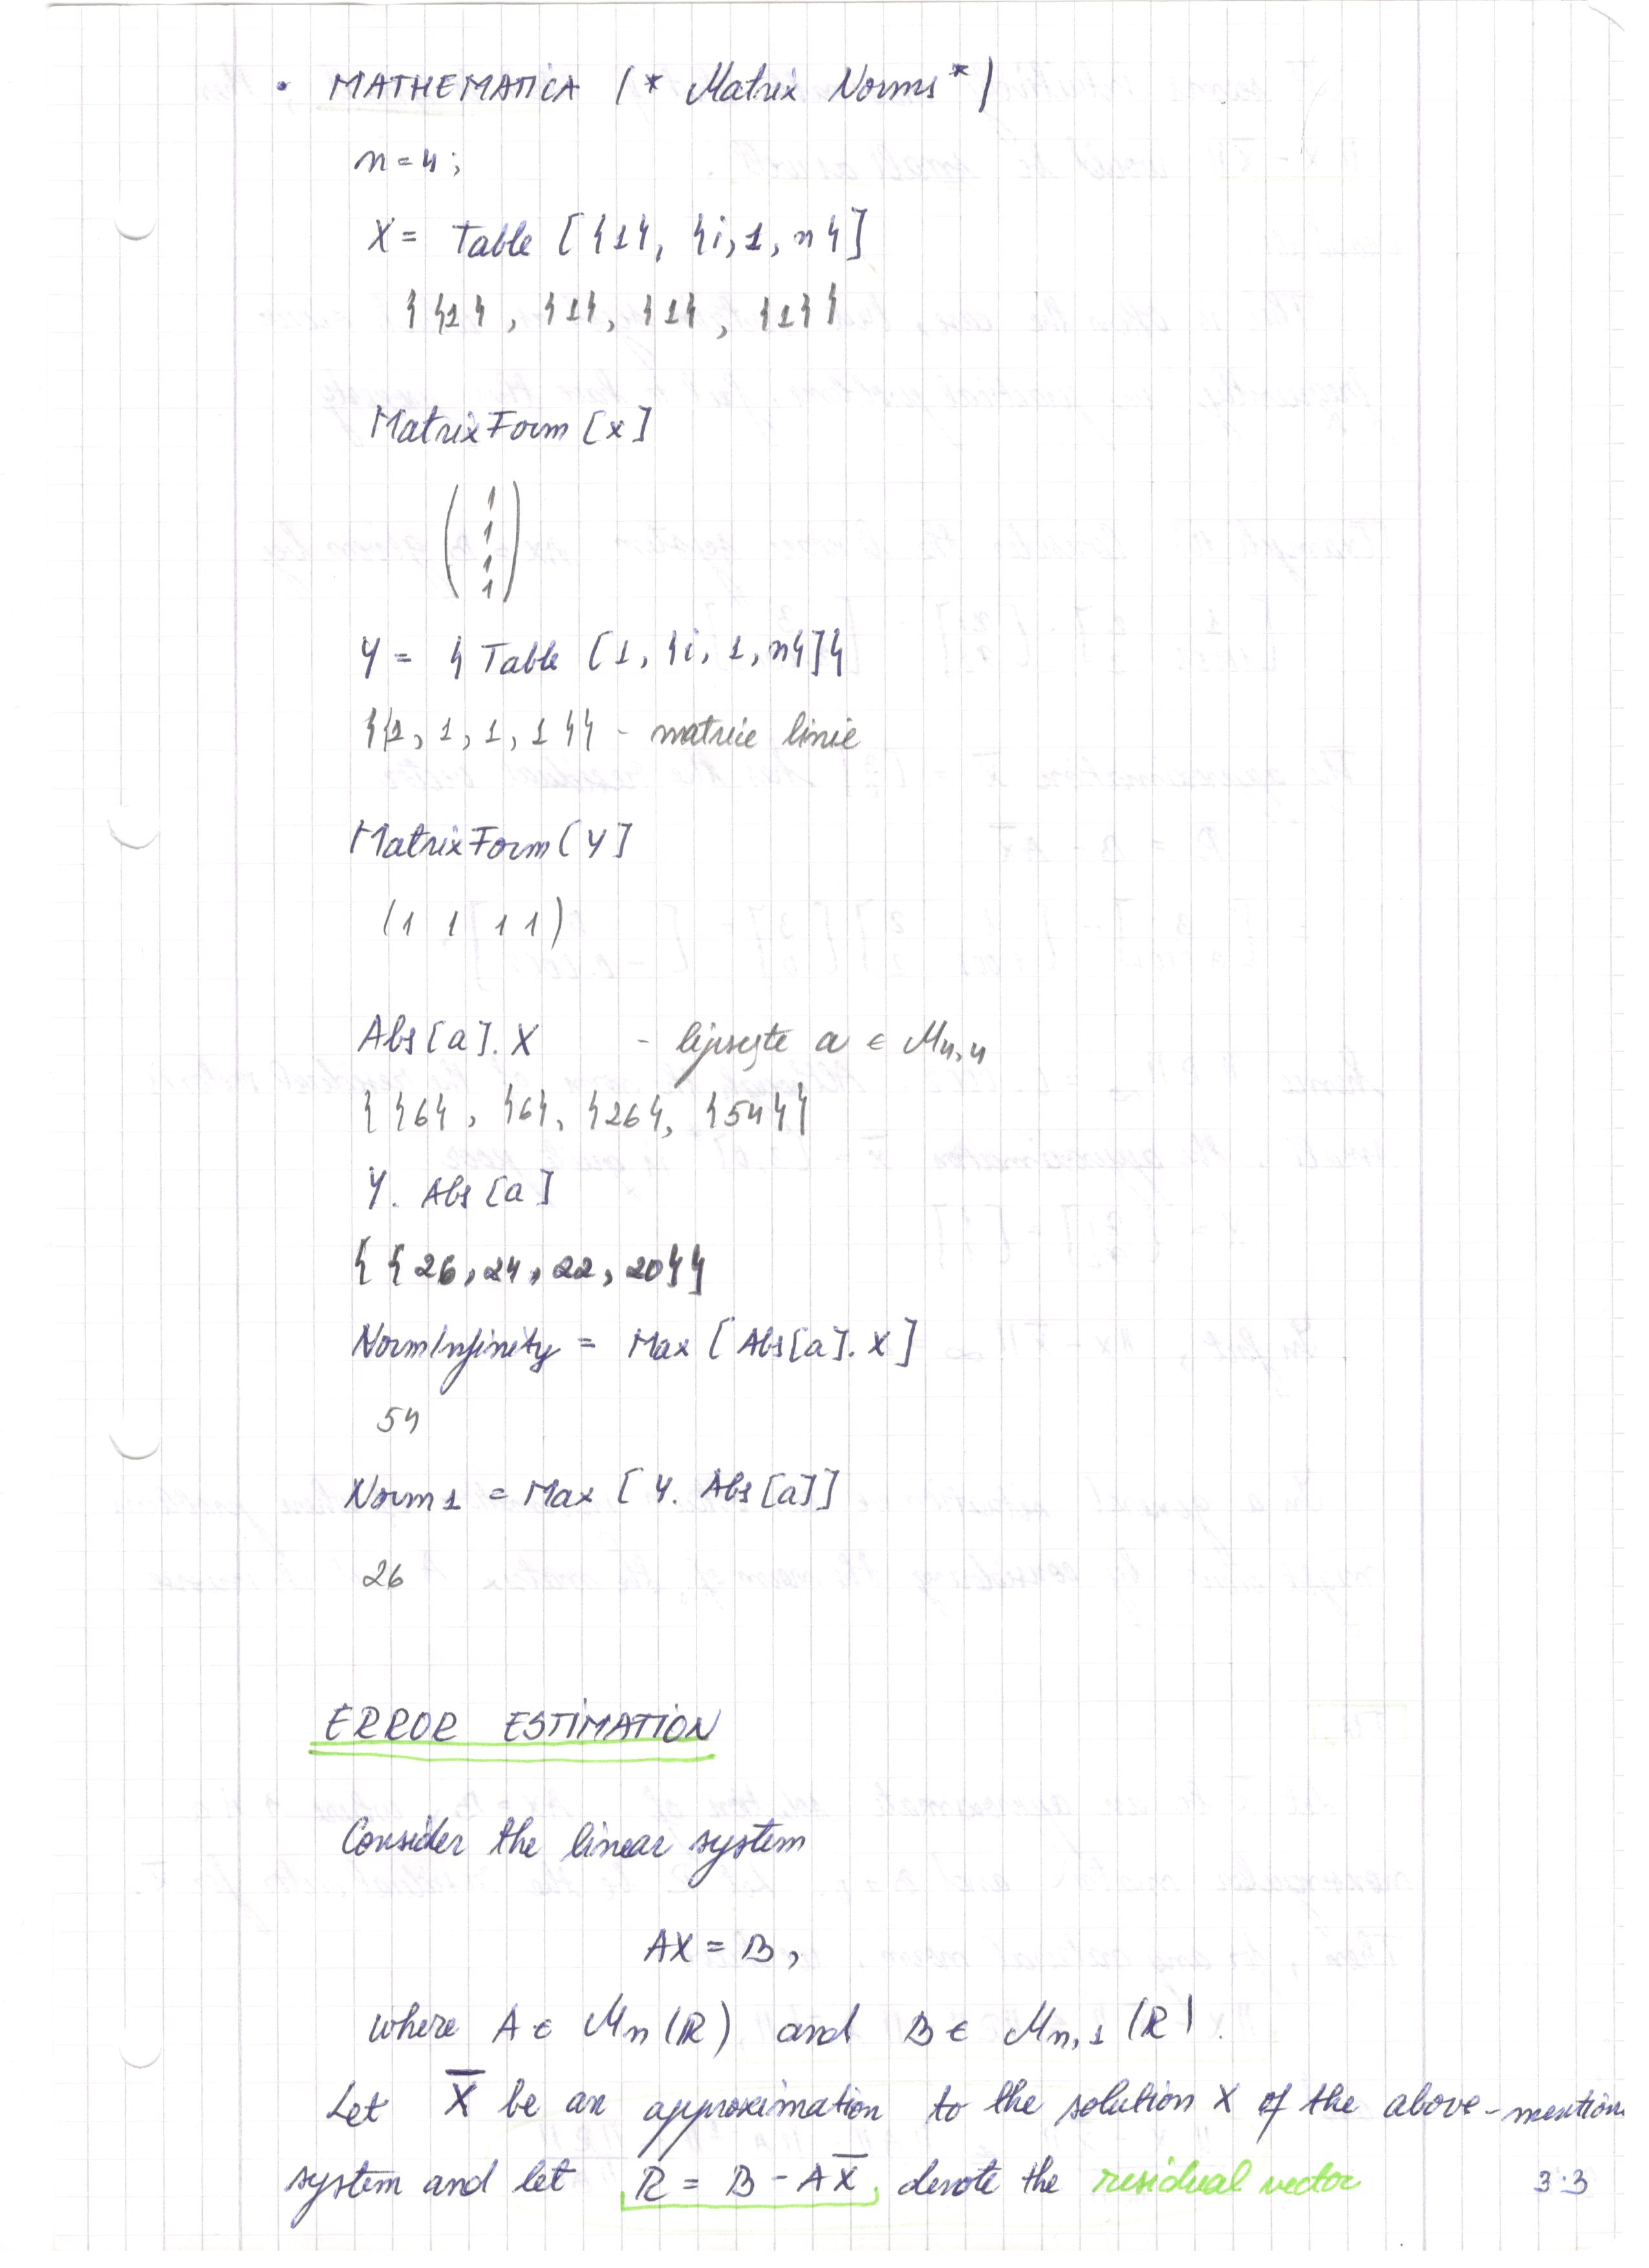 • MATHEMATICA (* Matrix Norms *)
n = 4;
X = Table [{1}, {i, 1, n}]
{{1}, {1}, {1}, {1}}
MatrixForm [x]
(1
1
1
1)
Y = {Table [1, {i, 1, n}]}
{{1, 1, 1, 1}} - matrice linie
MatrixForm [Y]
(1 1 1 1)
Abs[a]. X - lipsește a ∈ M4,4
{{6}, {6}, {26}, {54}}
Y. Abs [a]
{{26, 24, 22, 20}}
NormInfinity = Max [Abs[a]. X]
54
Norm1 = Max [Y. Abs[a]]
26
ERROR ESTIMATION
Consider the linear system
AX = B,
where A ∈ Mn (R) and B ∈ Mn,1 (R).
Let X̅ be an approximation to the solution X of the above-mention
system and let R = B - AX̅, denote the residual vector 3.3